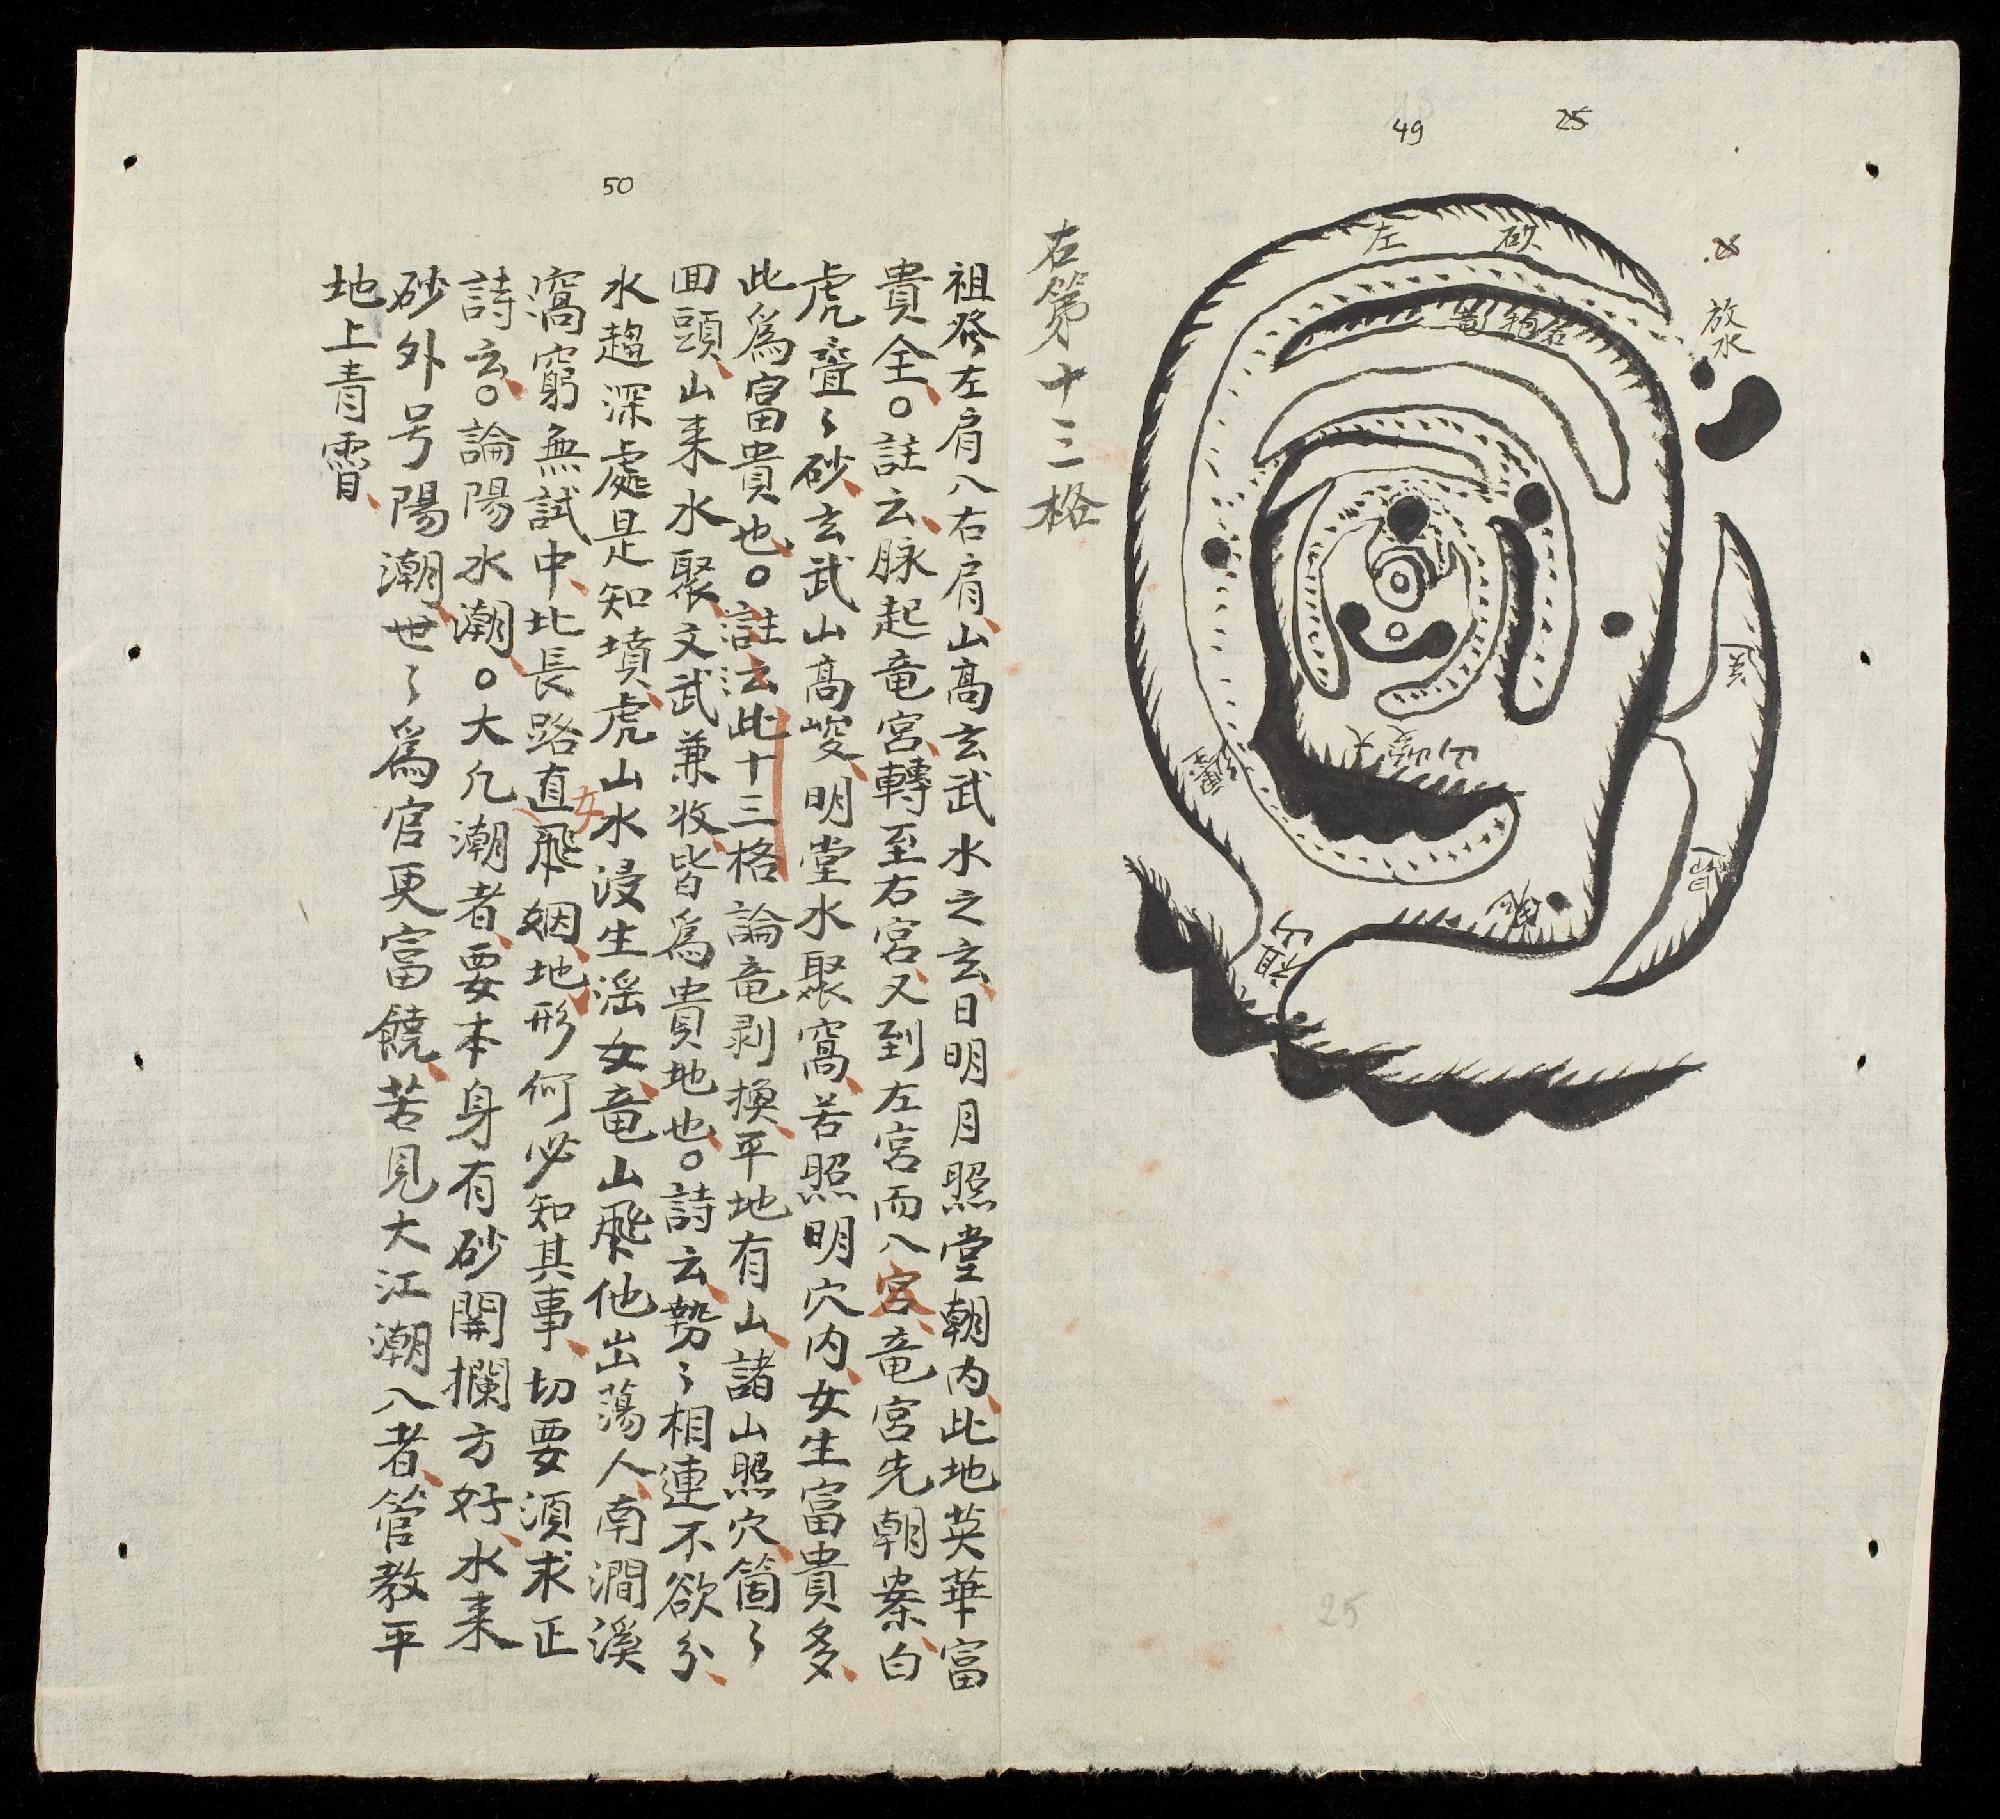 49
25
左 砂
放水
祖山
右第十三格
50
祖發左肩入右肩山高玄武水之玄日明月照堂朝内此地英華富
貴全。註云脉起竜宮轉至右宮又到左宮而入宮竜宮先朝案白
虎疊〻砂玄武山高峻明堂水聚窩若照明穴内女生富貴多
此為富貴也。註云此十三格論竜剥換平地有山諸山照穴箇〻
回頭山来水水聚文武兼收皆為貴地也。詩云勢〻相連不欲分
水趨深處是知墳虎山水浸生滛女竜山飛他出蕩人南澗溪
窩窮無試中北長路直飛姻地形何必知其事切要須求正
女
詩云。論陽水潮。大凡潮者要本身有砂開攔方好水来
砂外号陽潮世〻為官更富饒若見大江潮入者管教平
地上青霄
25